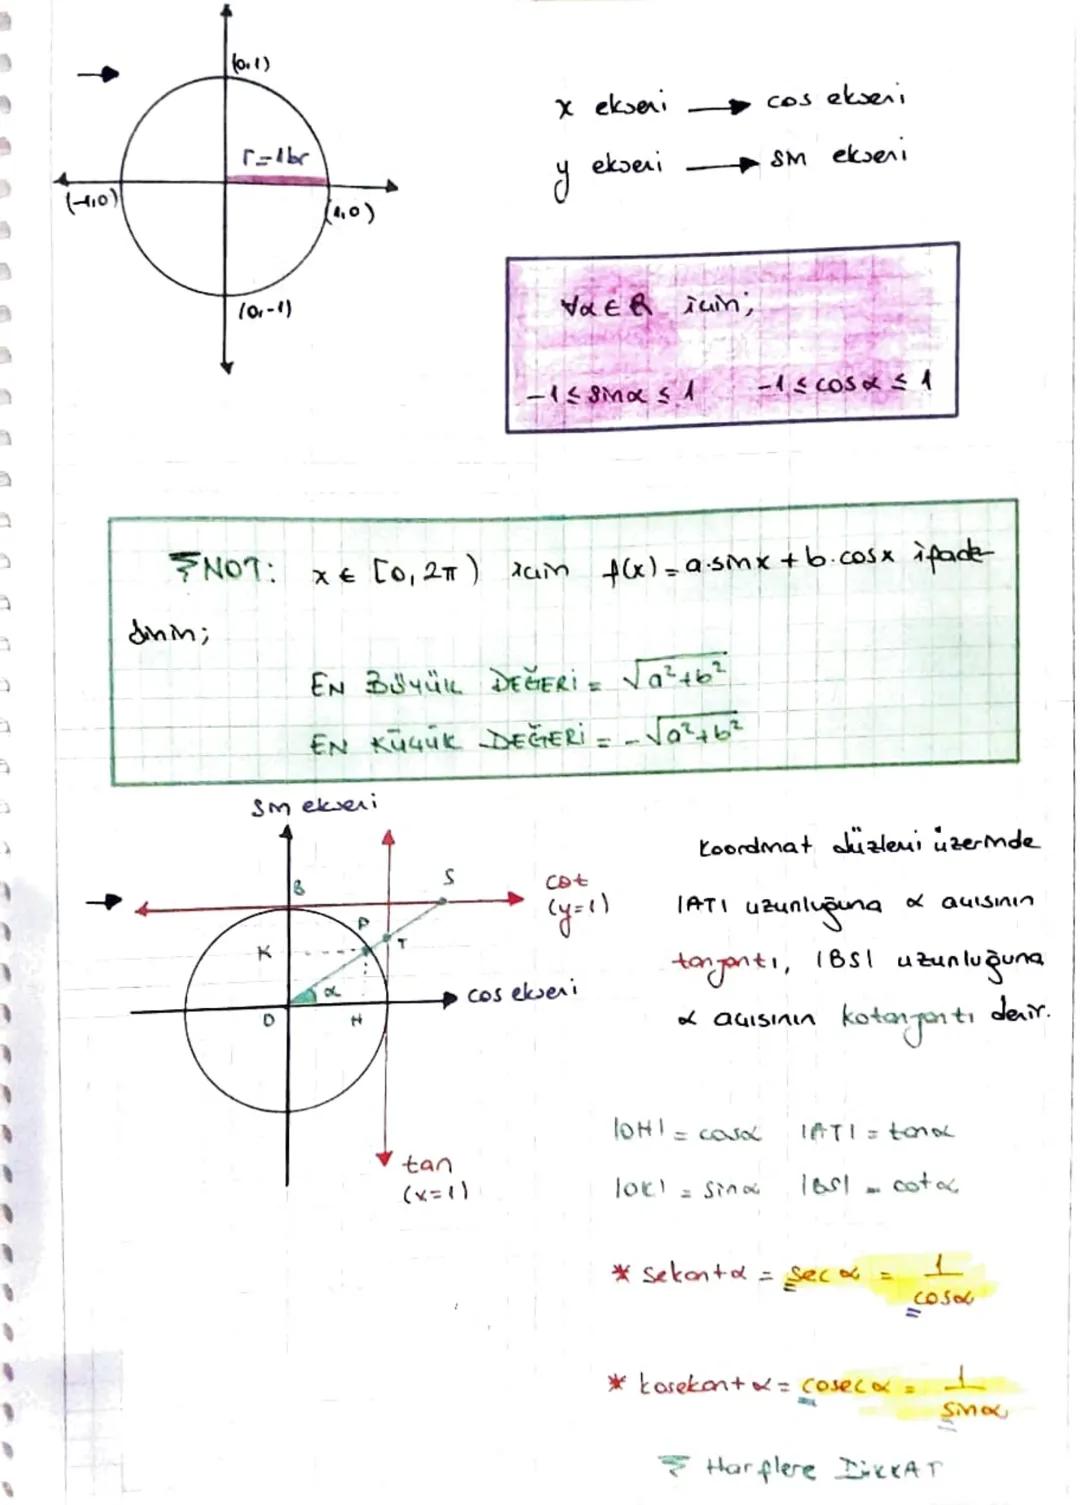 (0,1)
r=1br
(-1,0)
(1,0)
(0,-1)
x ekseni → cos ekseni
y ekseni → sin ekseni
∀α∈R için;
-1≤sinα≤1 -1≤cosα≤1
NOT: x∈[0,2π) için f(x)=a.sinx+b.cosx ifade-
sinin;
EN BÜYÜK DEĞERİ = √a²+b²
EN KÜÇÜK DEĞERİ = -√a²+b²
sin ekseni
B
S
cot
(y=1)
P
T
K
α
cos ekseni
O
H
tan
(x=1)
Koordinat düzlemi üzerinde
|AT| uzunluğuna α açısının
tanjantı, |BS| uzunluğuna
α açısının kotanjantı denir.
|OH| = cosα |AT| = tanα
|OK| = sinα |BS| = cotα
* sekant α = sec α = 1/cosα
* kosekant α = cosec α = 1/sinα
Harflere DİKKAT